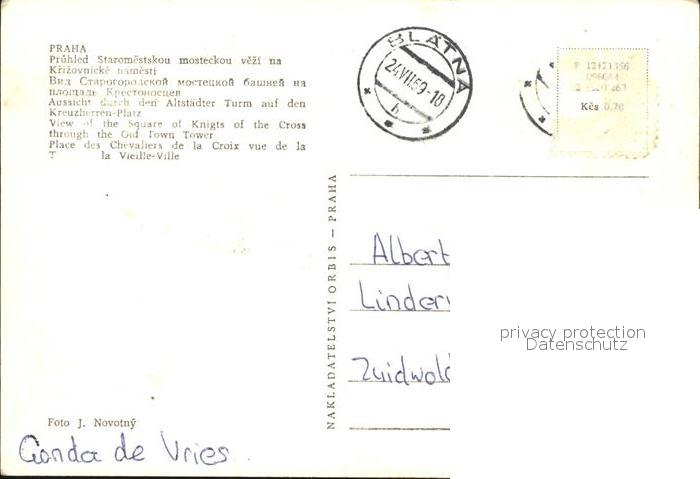 PRAHA
Průhled Staroměstskou mosteckou věží na
Křižovnické náměstí
Вид Старогородской мостецкой башней на
площадь Крестоносцев
Aussicht durch den Altstädter Turm auf den
Kreuzherren-Platz
View of the Square of Knigts of the Cross
through the Old Town Tower
Place des Chevaliers de la Croix vue de la
T la Vieille-Ville
BLATNÁ
24.VII.59-10
b
Kčs 0,70
NAKLADATELSTVÍ ORBIS — PRAHA
Albert
Linder
Zuidwol
privacy protection
Datenschutz
Foto J. Novotný
Gonda de Vries